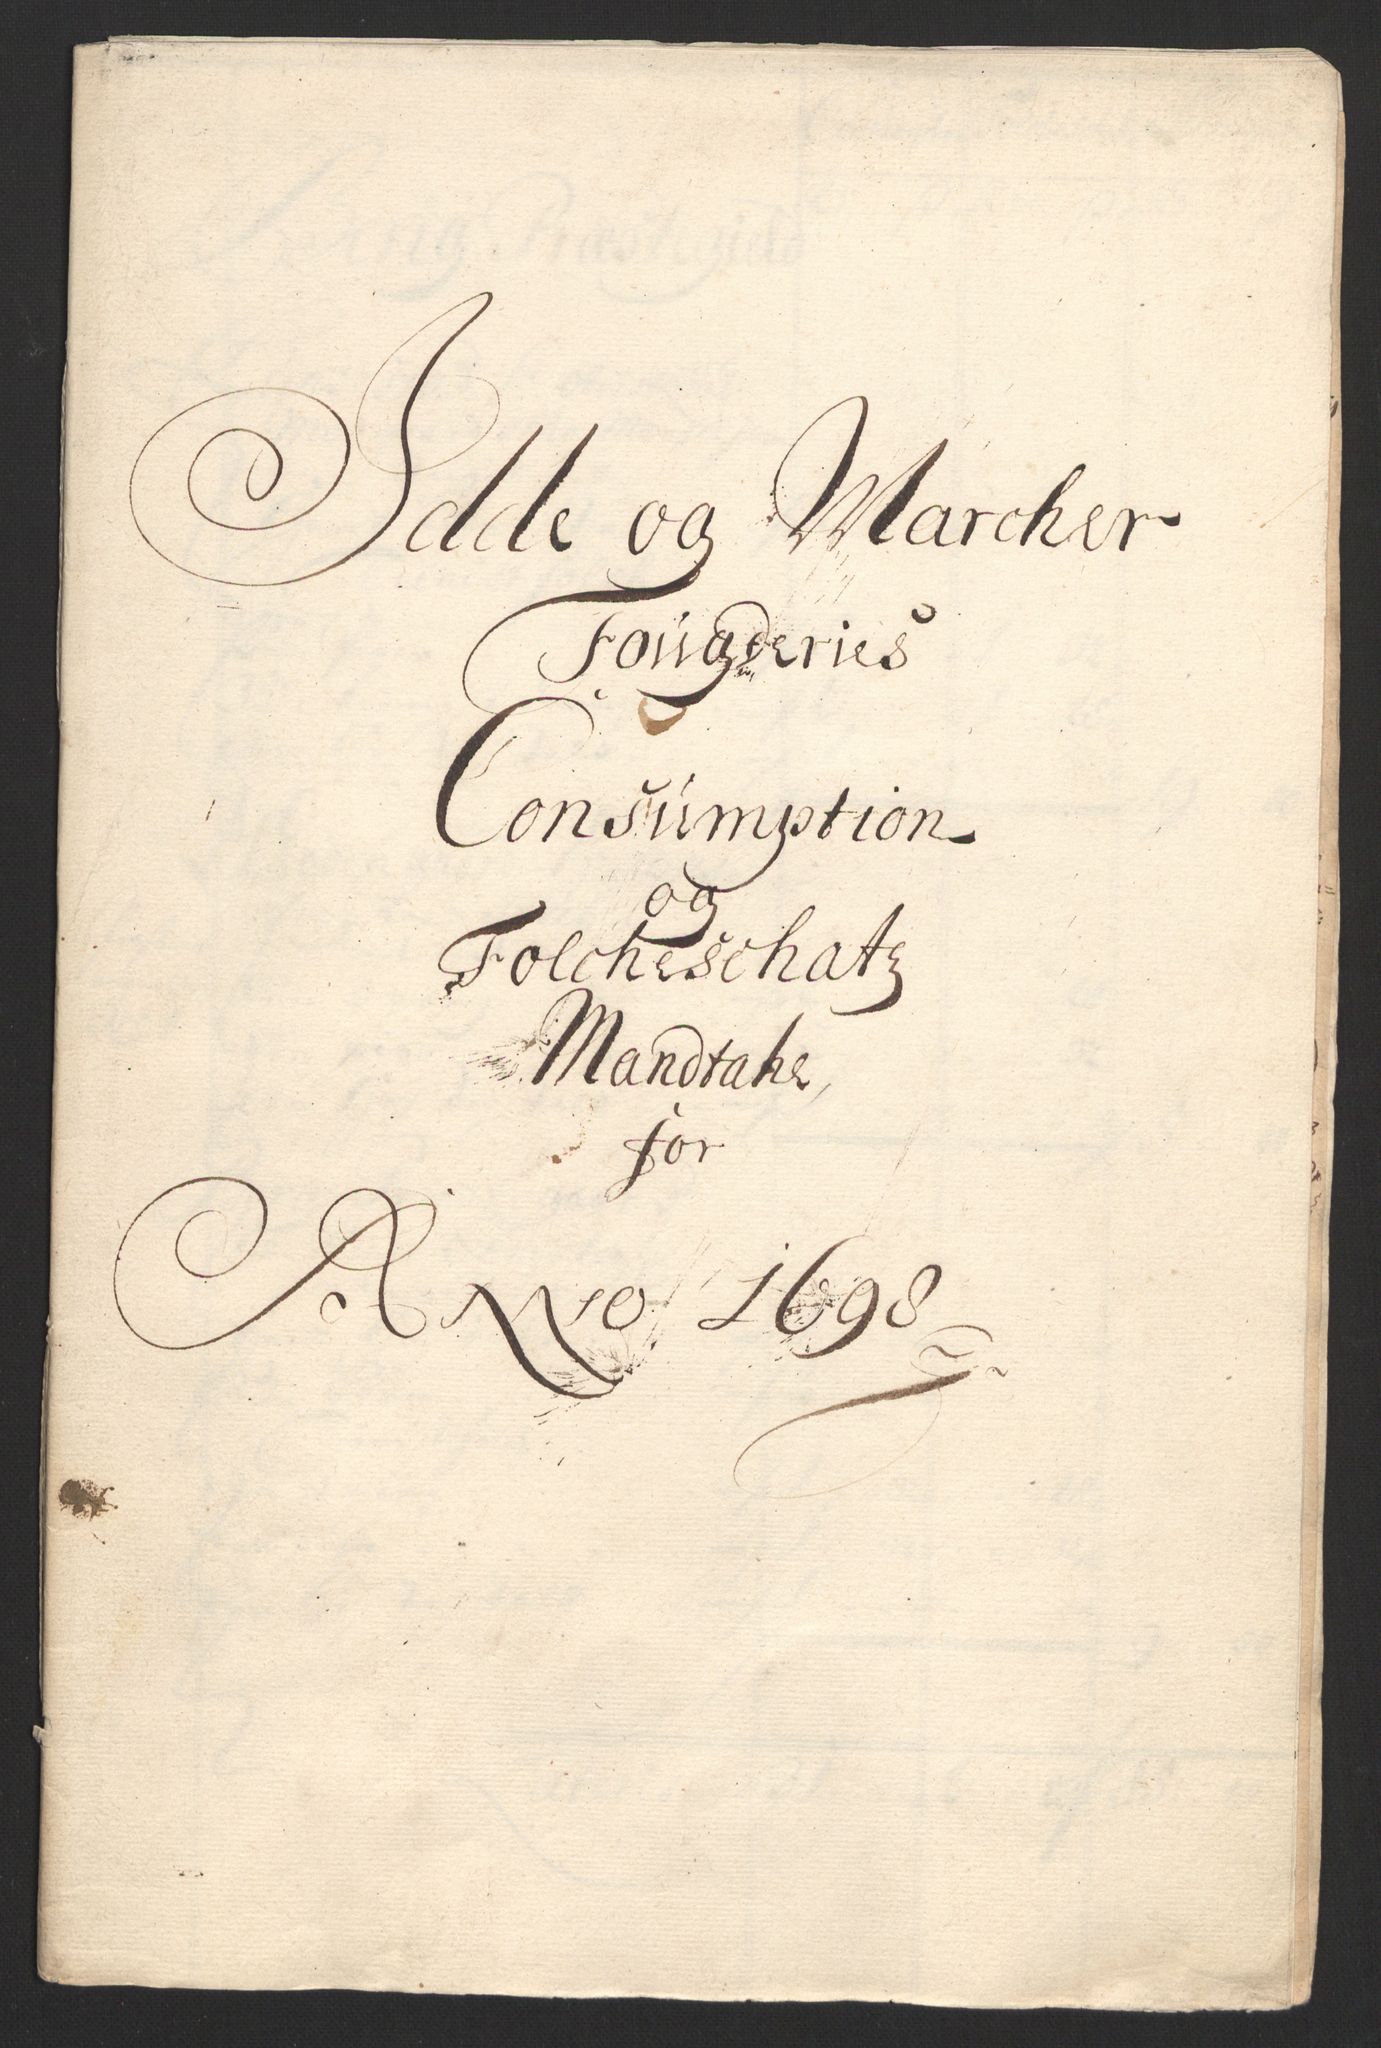 Idde og Marcher
Fougderies
Consumption
og
Folcheschatz
Mandtahl
for
Anno 1698